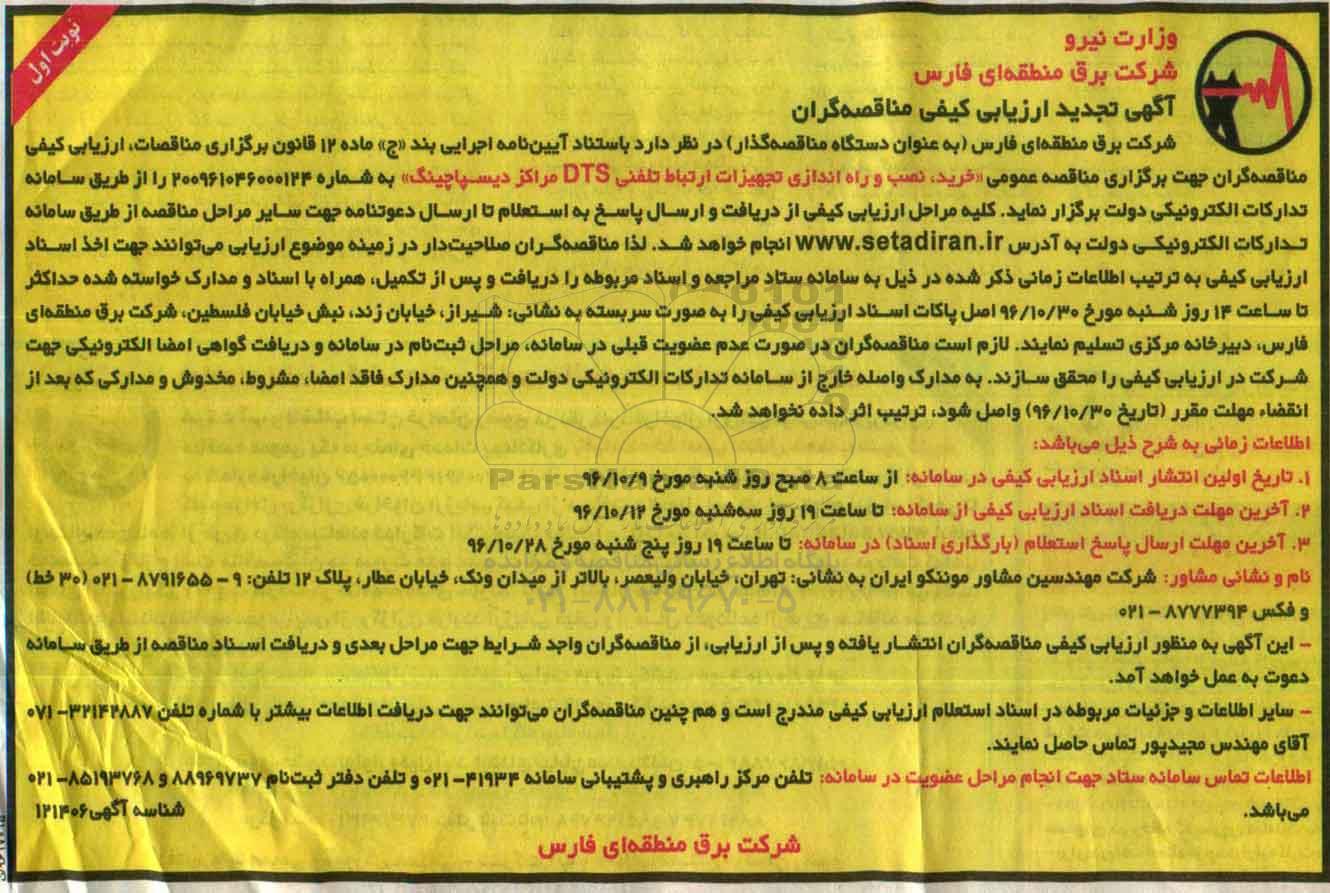 نوبت اول
وزارت نیرو
شرکت برق منطقه‌ای فارس
آگهی تجدید ارزیابی کیفی مناقصه‌گران
شرکت برق منطقه‌ای فارس (به عنوان دستگاه مناقصه‌گذار) در نظر دارد باستناد آیین‌نامه اجرایی بند «ج» ماده ۱۲ قانون برگزاری مناقصات، ارزیابی کیفی
مناقصه‌گران جهت برگزاری مناقصه عمومی «خرید، نصب و راه اندازی تجهیزات ارتباط تلفنی DTS مراکز دیسپاچینگ» به شماره ۲۰۰۹۶۱۰۴۶۰۰۰۱۲۴ را از طریق سامانه
تدارکات الکترونیکی دولت برگزار نماید. کلیه مراحل ارزیابی کیفی از دریافت و ارسال پاسخ به استعلام تا ارسال دعوتنامه جهت سایر مراحل مناقصه از طریق سامانه
تدارکات الکترونیکی دولت به آدرس www.setadiran.ir انجام خواهد شد. لذا مناقصه‌گران صلاحیت‌دار در زمینه موضوع ارزیابی می‌توانند جهت اخذ اسناد
ارزیابی کیفی به ترتیب اطلاعات زمانی ذکر شده در ذیل به سامانه ستاد مراجعه و اسناد مربوطه را دریافت و پس از تکمیل، همراه با اسناد و مدارک خواسته شده حداکثر
تا ساعت ۱۴ روز شنبه مورخ ۹۶/۱۰/۳۰ اصل پاکات اسناد ارزیابی کیفی را به صورت سربسته به نشانی: شیراز، خیابان زند، نبش خیابان فلسطین، شرکت برق منطقه‌ای
فارس، دبیرخانه مرکزی تسلیم نمایند. لازم است مناقصه‌گران در صورت عدم عضویت قبلی در سامانه، مراحل ثبت‌نام در سامانه و دریافت گواهی امضا الکترونیکی جهت
شرکت در ارزیابی کیفی را محقق سازند. به مدارک واصله خارج از سامانه تدارکات الکترونیکی دولت و همچنین مدارک فاقد امضا، مشروط، مخدوش و مدارکی که بعد از
انقضاء مهلت مقرر (تاریخ ۹۶/۱۰/۳۰) واصل شود، ترتیب اثر داده نخواهد شد.
اطلاعات زمانی به شرح ذیل می‌باشد:
۱. تاریخ اولین انتشار اسناد ارزیابی کیفی در سامانه: از ساعت ۸ صبح روز شنبه مورخ ۹۶/۱۰/۹
۲. آخرین مهلت دریافت اسناد ارزیابی کیفی از سامانه: تا ساعت ۱۹ روز سه‌شنبه مورخ ۹۶/۱۰/۱۲
۳. آخرین مهلت ارسال پاسخ استعلام (بارگذاری اسناد) در سامانه: تا ساعت ۱۹ روز پنج شنبه مورخ ۹۶/۱۰/۲۸
نام و نشانی مشاور: شرکت مهندسین مشاور موننکو ایران به نشانی: تهران، خیابان ولیعصر، بالاتر از میدان ونک، خیابان عطار، پلاک ۱۲ تلفن: ۹ - ۸۷۹۱۶۵۵ - ۰۲۱ (۳۰ خط)
و فکس ۸۷۷۷۳۹۴ - ۰۲۱
- این آگهی به منظور ارزیابی کیفی مناقصه‌گران انتشار یافته و پس از ارزیابی، از مناقصه‌گران واجد شرایط جهت مراحل بعدی و دریافت اسناد مناقصه از طریق سامانه
دعوت به عمل خواهد آمد.
- سایر اطلاعات و جزئیات مربوطه در اسناد استعلام ارزیابی کیفی مندرج است و هم چنین مناقصه‌گران می‌توانند جهت دریافت اطلاعات بیشتر با شماره تلفن ۳۲۱۴۲۸۸۷-۰۷۱
آقای مهندس مجیدپور تماس حاصل نمایند.
اطلاعات تماس سامانه ستاد جهت انجام مراحل عضویت در سامانه: تلفن مرکز راهبری و پشتیبانی سامانه ۴۱۹۳۴-۰۲۱ و تلفن دفتر ثبت‌نام ۸۸۹۶۹۷۳۷ و ۸۵۱۹۳۷۶۸-۰۲۱
می‌باشد.
شناسه آگهی ۱۲۱۴۰۶
شرکت برق منطقه‌ای فارس
۰۲۱-۸۸۳۴۹۶۷۰-۵